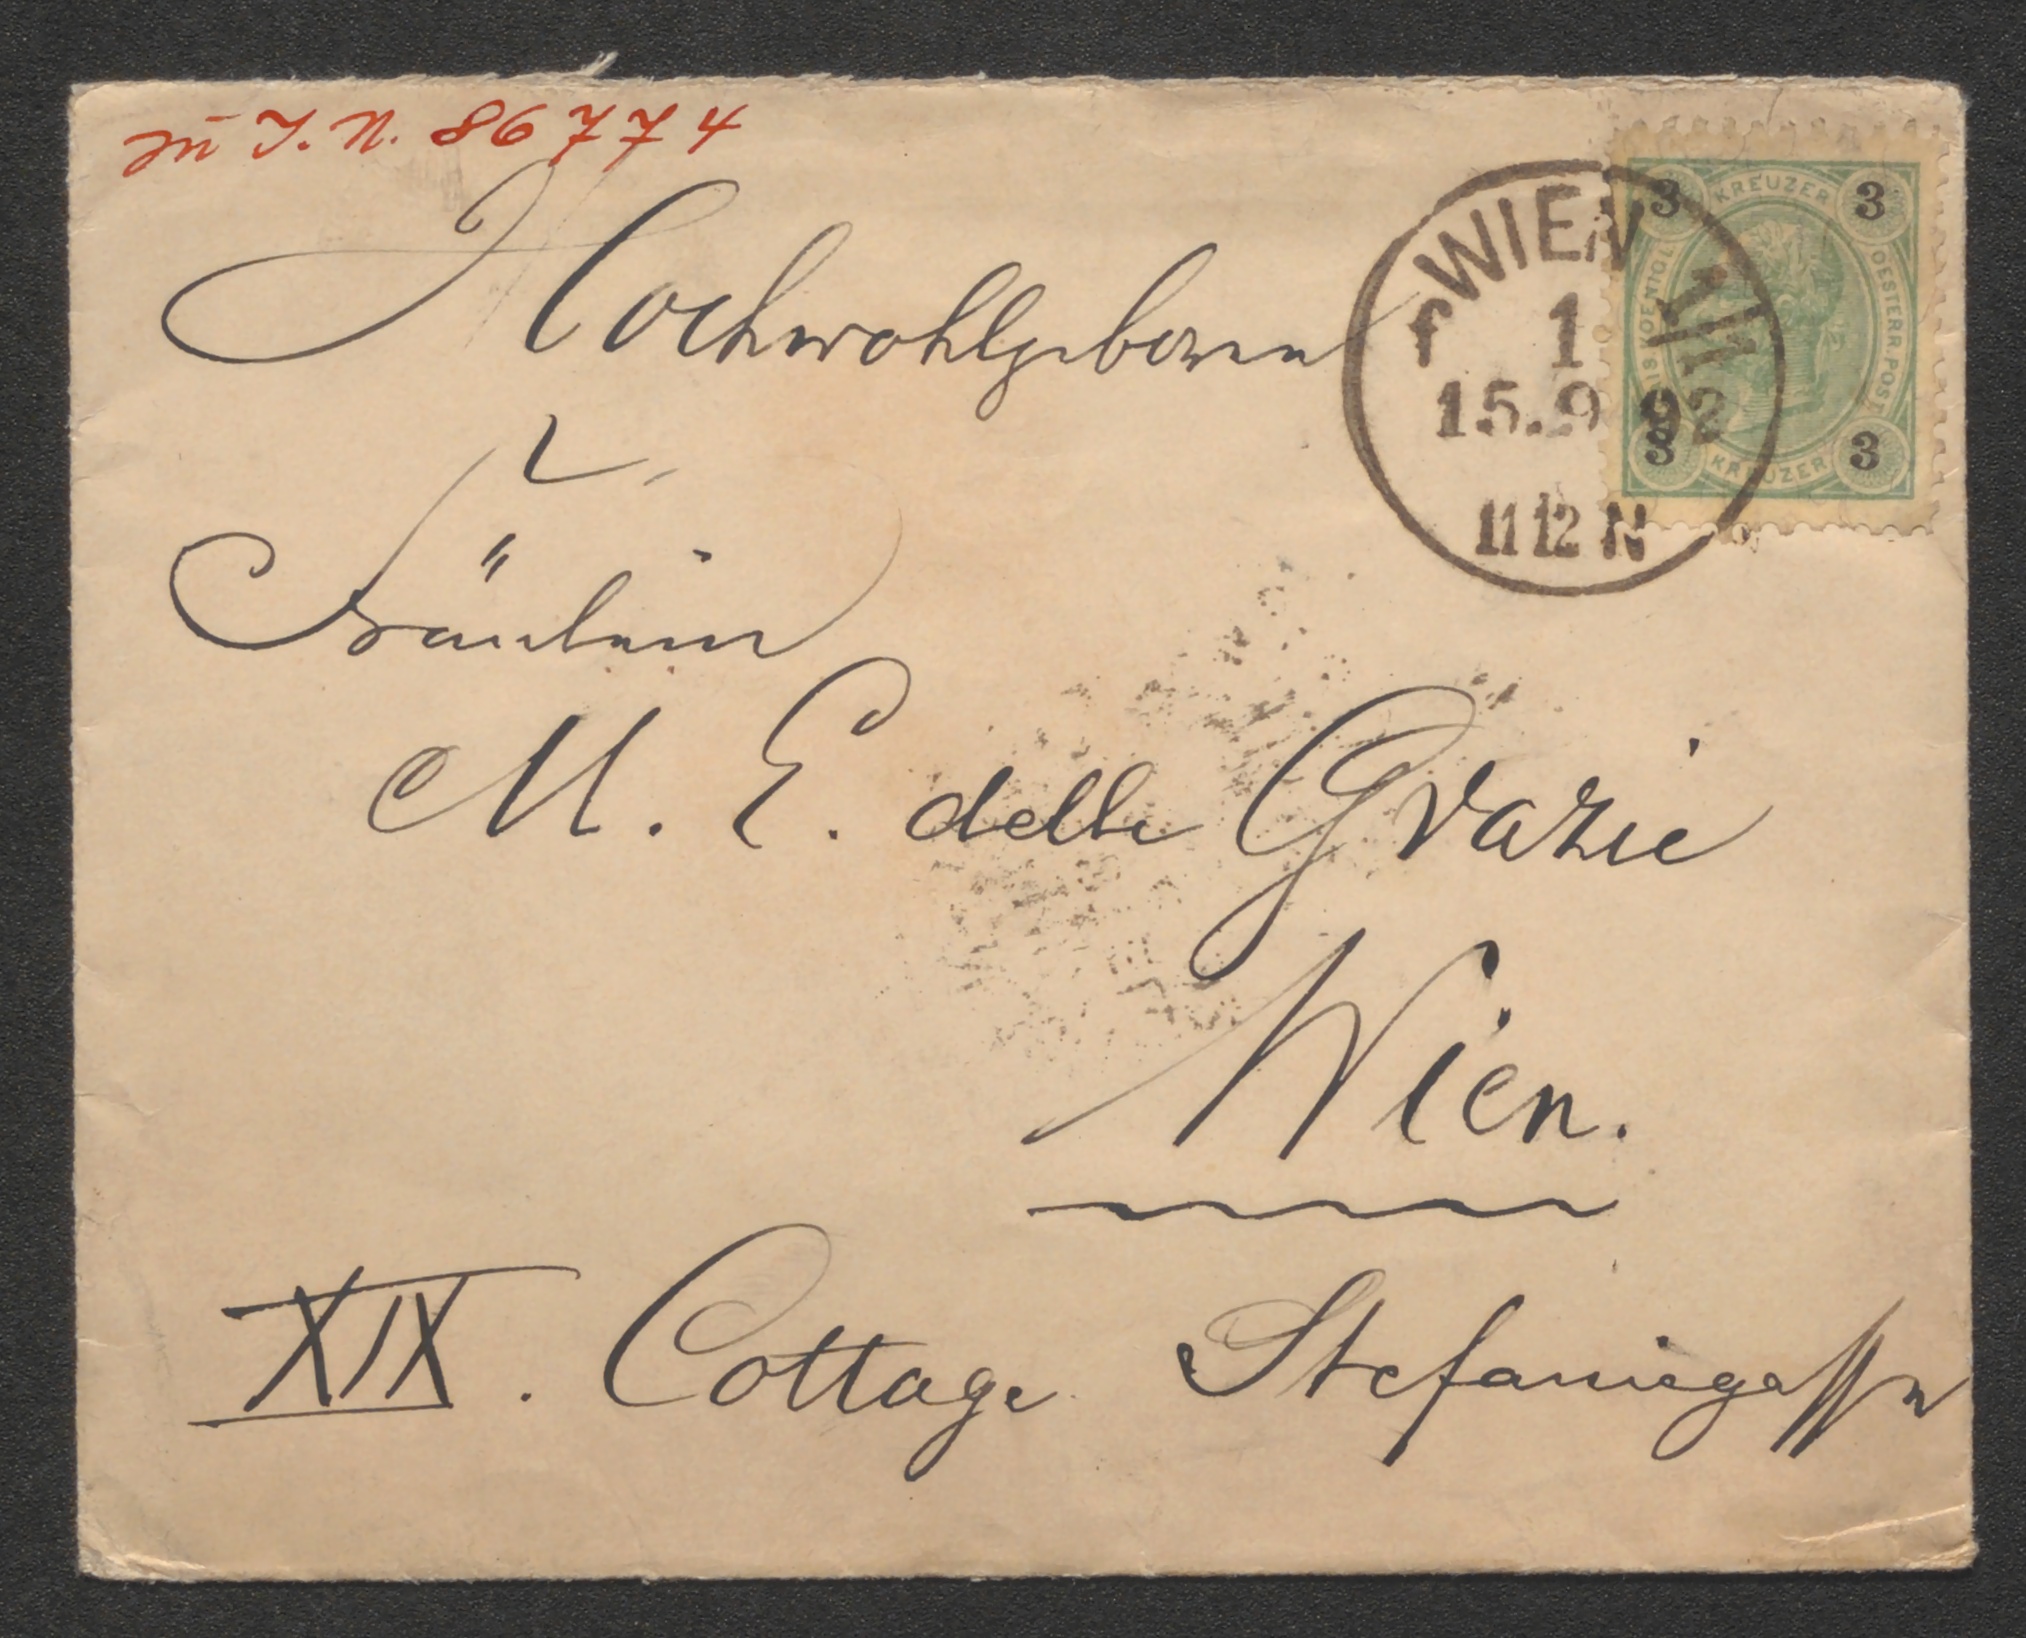 zu I. N. 86774
Hochwohlgeboren
Fräulein
M. E. delle Grazie
Wien.
XIX. Cottage Stefaniegasse
WIEN 1/1
f 1
15.9 92
11 12 N
3 KREUZER 3
KOENIGL
OESTERR. POST
3 KREUZER 3